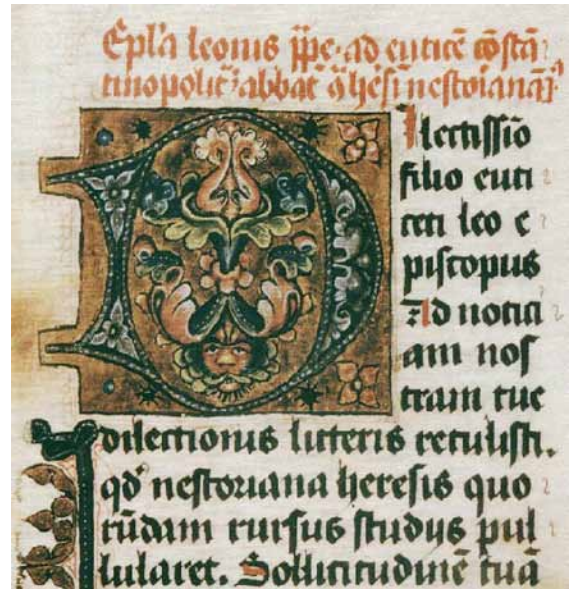 Epl'a leonis p̄pe. ad euticē cōstā
tinopolit' abbat̄ 9 hesī nestoianā
D Ilectissīo
filio euti
ceti leo e
piscopus
Ad notici
am nos
tram tue
dilectionis litteris retulisti.
qđ nestoriana heresis quo
rūdam rursus studijs pul
lularet. Sollicitudinē tuā